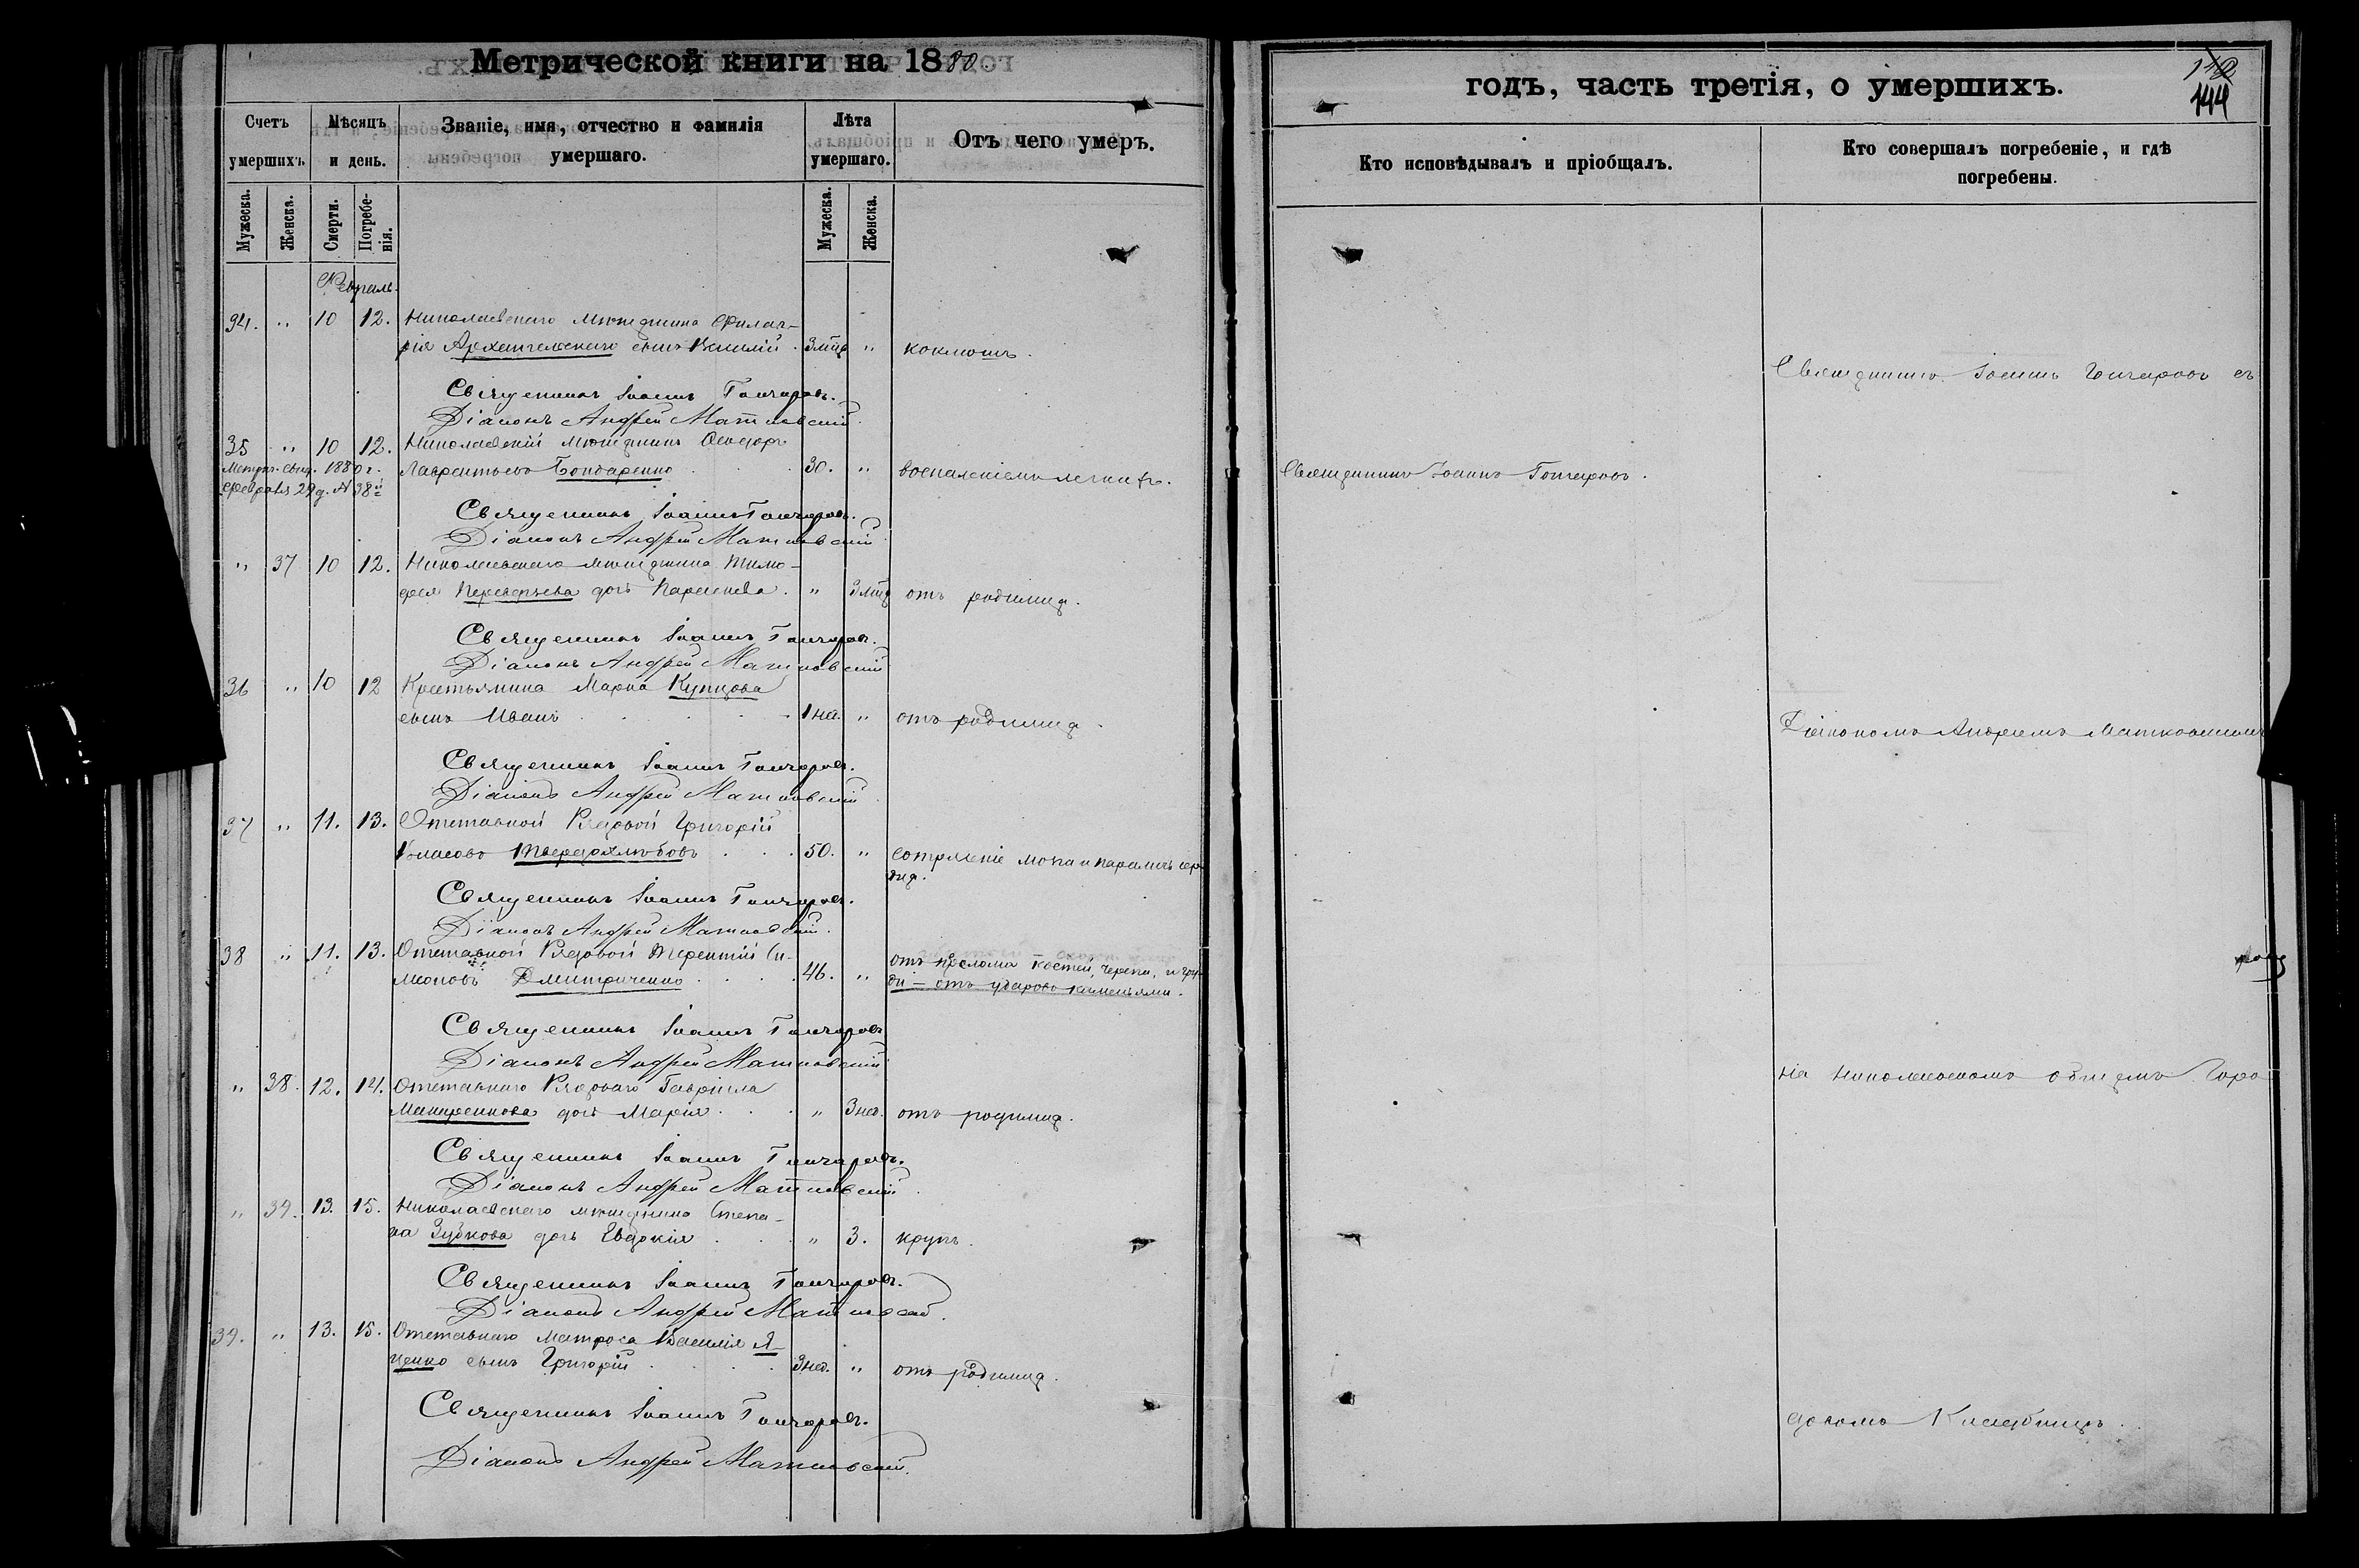 Метрической книги на 1880
Счетъ умершихъ.
Мѣсяцъ и день.
Званіе, имя, отчество и фамилія умершаго.
Лѣта умершаго.
Отъ чего умеръ.
Мужеска.
Женска.
Смерти.
Погребенія.
Мужеска.
Женска.
Февраль.
34. " 10 12. Николаевскаго мѣщанина Филаг-
рія Архангельскаго сынъ Василій. 3 мѣс " коклюшъ.
Священникъ Іоаннъ Гончаровъ.
Діаконъ Андрей Матковскій.
35 " 10 12. Николаевскій мѣщанинъ Ѳеодоръ
Метрич. свид. 1880 г. Лаврентьевъ Бондаренко 30. " воспаленіемъ легкихъ.
Февраля 29 д. № 38й
Священникъ Іоаннъ Гончаровъ.
Діаконъ Андрей Матковскій
" 37 10 12. Николаевскаго мѣщанина Тимо-
фея дочь Параскева. " 3 мѣс отъ родимца.
Священникъ Іоаннъ Гончаровъ.
Діаконъ Андрей Матковскій
36 " 10 12 Крестьянина Марка Купцова
сынъ Иванъ 1 нед. " отъ родимца.
Священникъ Іоаннъ Гончаровъ.
Діаконъ Андрей Матковскій
37 " 11. 13. Отставной Рядовой Григорій
Твердохлѣбовъ 50. " сотрясеніе мозга и параличъ сер-
дца.
Священникъ Іоаннъ Гончаровъ.
Діаконъ Андрей Матковскій.
38 " 11. 13. Отставной Рядовой Терентій Си-
меоновъ Дмитриченко 46. " отъ прелома костей, черепа, и гру-
ди – отъ ударовъ каменьями.
Священникъ Іоаннъ Гончаровъ
Діаконъ Андрей Матковскій
" 38. 12. 14. Отставнаго Рядоваго Гавріила
дочь Марія " 3 нед. отъ родимца.
Священникъ Іоаннъ Гончаровъ.
Діаконъ Андрей Матковскій
" 39. 13. 15. Николаевскаго мѣщанина Степа-
на Зубкова дочь Евдокія " 3. крупъ.
Священникъ Іоаннъ Гончаровъ.
Діаконъ Андрей Матковскій.
39. " 13. 15. Отставнаго Матроса Василія Я-
ценко сынъ Григорій 3 нед. " отъ родимца.
Священникъ Іоаннъ Гончаровъ.
Діаконъ Андрей Матковскій.
годъ, часть третія, о умершихъ.
144
Кто исповѣдывалъ и пріобщалъ.
Кто совершалъ погребеніе, и гдѣ погребены.
Священникъ Іоаннъ Гончаровъ съ
Священникъ Іоаннъ Гончаровъ.
Діакономъ Андреемъ Матковскимъ
на Николаевскомъ общемъ Горо
дскомъ Кладбищѣ.